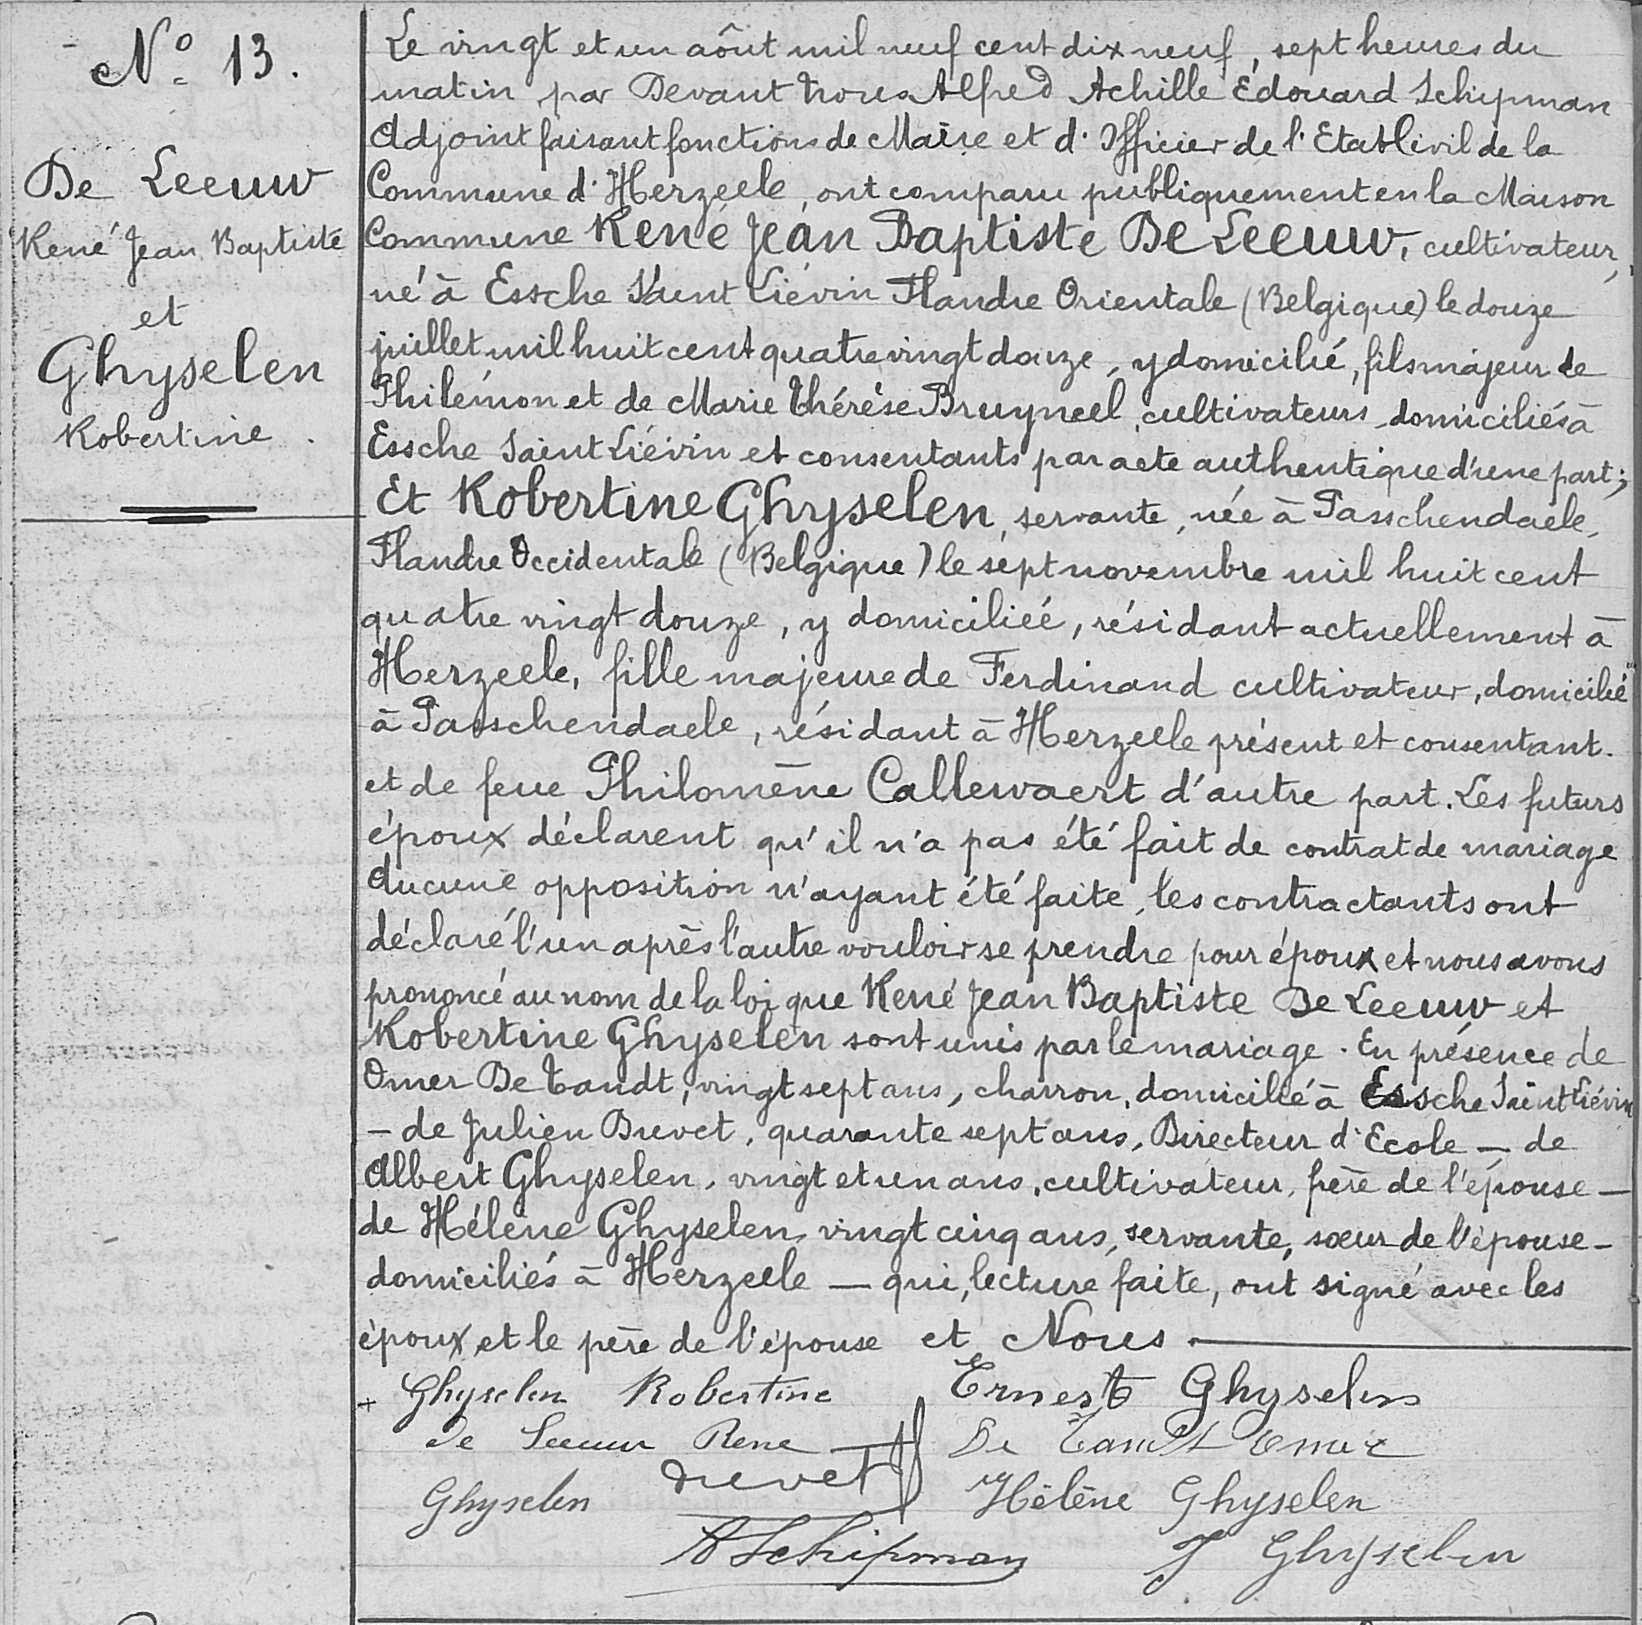 N° 13.
De Leeuw
René Jean Baptiste
et
Ghyselen
Robertine.
Le vingt et un aôut mil neuf cent dix neuf, sept heures du
matin, par Devant nous Alfred Achille Edouard Schipman
Adjoint faisant fonctions de Maire et d'Officier de l'Etat Civil de la
Commune d'Herzeele, ont comparu publiquement en la Maison
Commune René Jean Baptiste De Leeuw, cultivateur,
né à Essche Saint Liévin Flandre Orientale (Belgique) le douze
juillet mil huit cent quatre vingt douze, y domicilié, fils majeur de
Philémon et de Marie Thérèse Bruyneel, cultivateurs, domiciliés à
Essche Saint Liévin et consentants par acte authentique d'une part;
Et Robertine Ghyselen, servante, née à Passchendaele,
Flandre Occidentale (Belgique) le sept novembre mil huit cent
quatre vingt douze, y domiciliée, résidant actuellement à
Herzeele, fille majeure de Ferdinand cultivateur, domicilié
à Passchendaele, résidant à Herzeele présent et consentant.
et de feue Philomène Callewaert d'autre part. Les futurs
époux déclarent qu'il n'a pas été fait de contrat de mariage
Aucune opposition n'ayant été faite, les contractants ont
déclaré l'un après l'autre vouloir se prendre pour époux et nous avons
prononcé au nom de la loi que René Jean Baptiste De Leeuw et
Robertine Ghyselen sont unis par le mariage. En présence de
Omer De Tandt, vingt sept ans, charron, domicilié à Essche Saint Liévin
– de Julien Duvet, quarante sept ans, Directeur d'Ecole – de
Albert Ghyselen, vingt et un ans, cultivateur, frère de l'épouse –
de Hélène Ghyselen, vingt cinq ans, servante, sœur de l'épouse –
domiciliés à Herzeele – qui, lecture faite, ont signé avec les
époux et le père de l'épouse et Nous.
+ Ghyselen Robertine Ernest Ghyselen
De Leeuw Rene De Tandt Omer
Ghyselen Duvet Hélène Ghyselen
A Schipman J Ghyselen